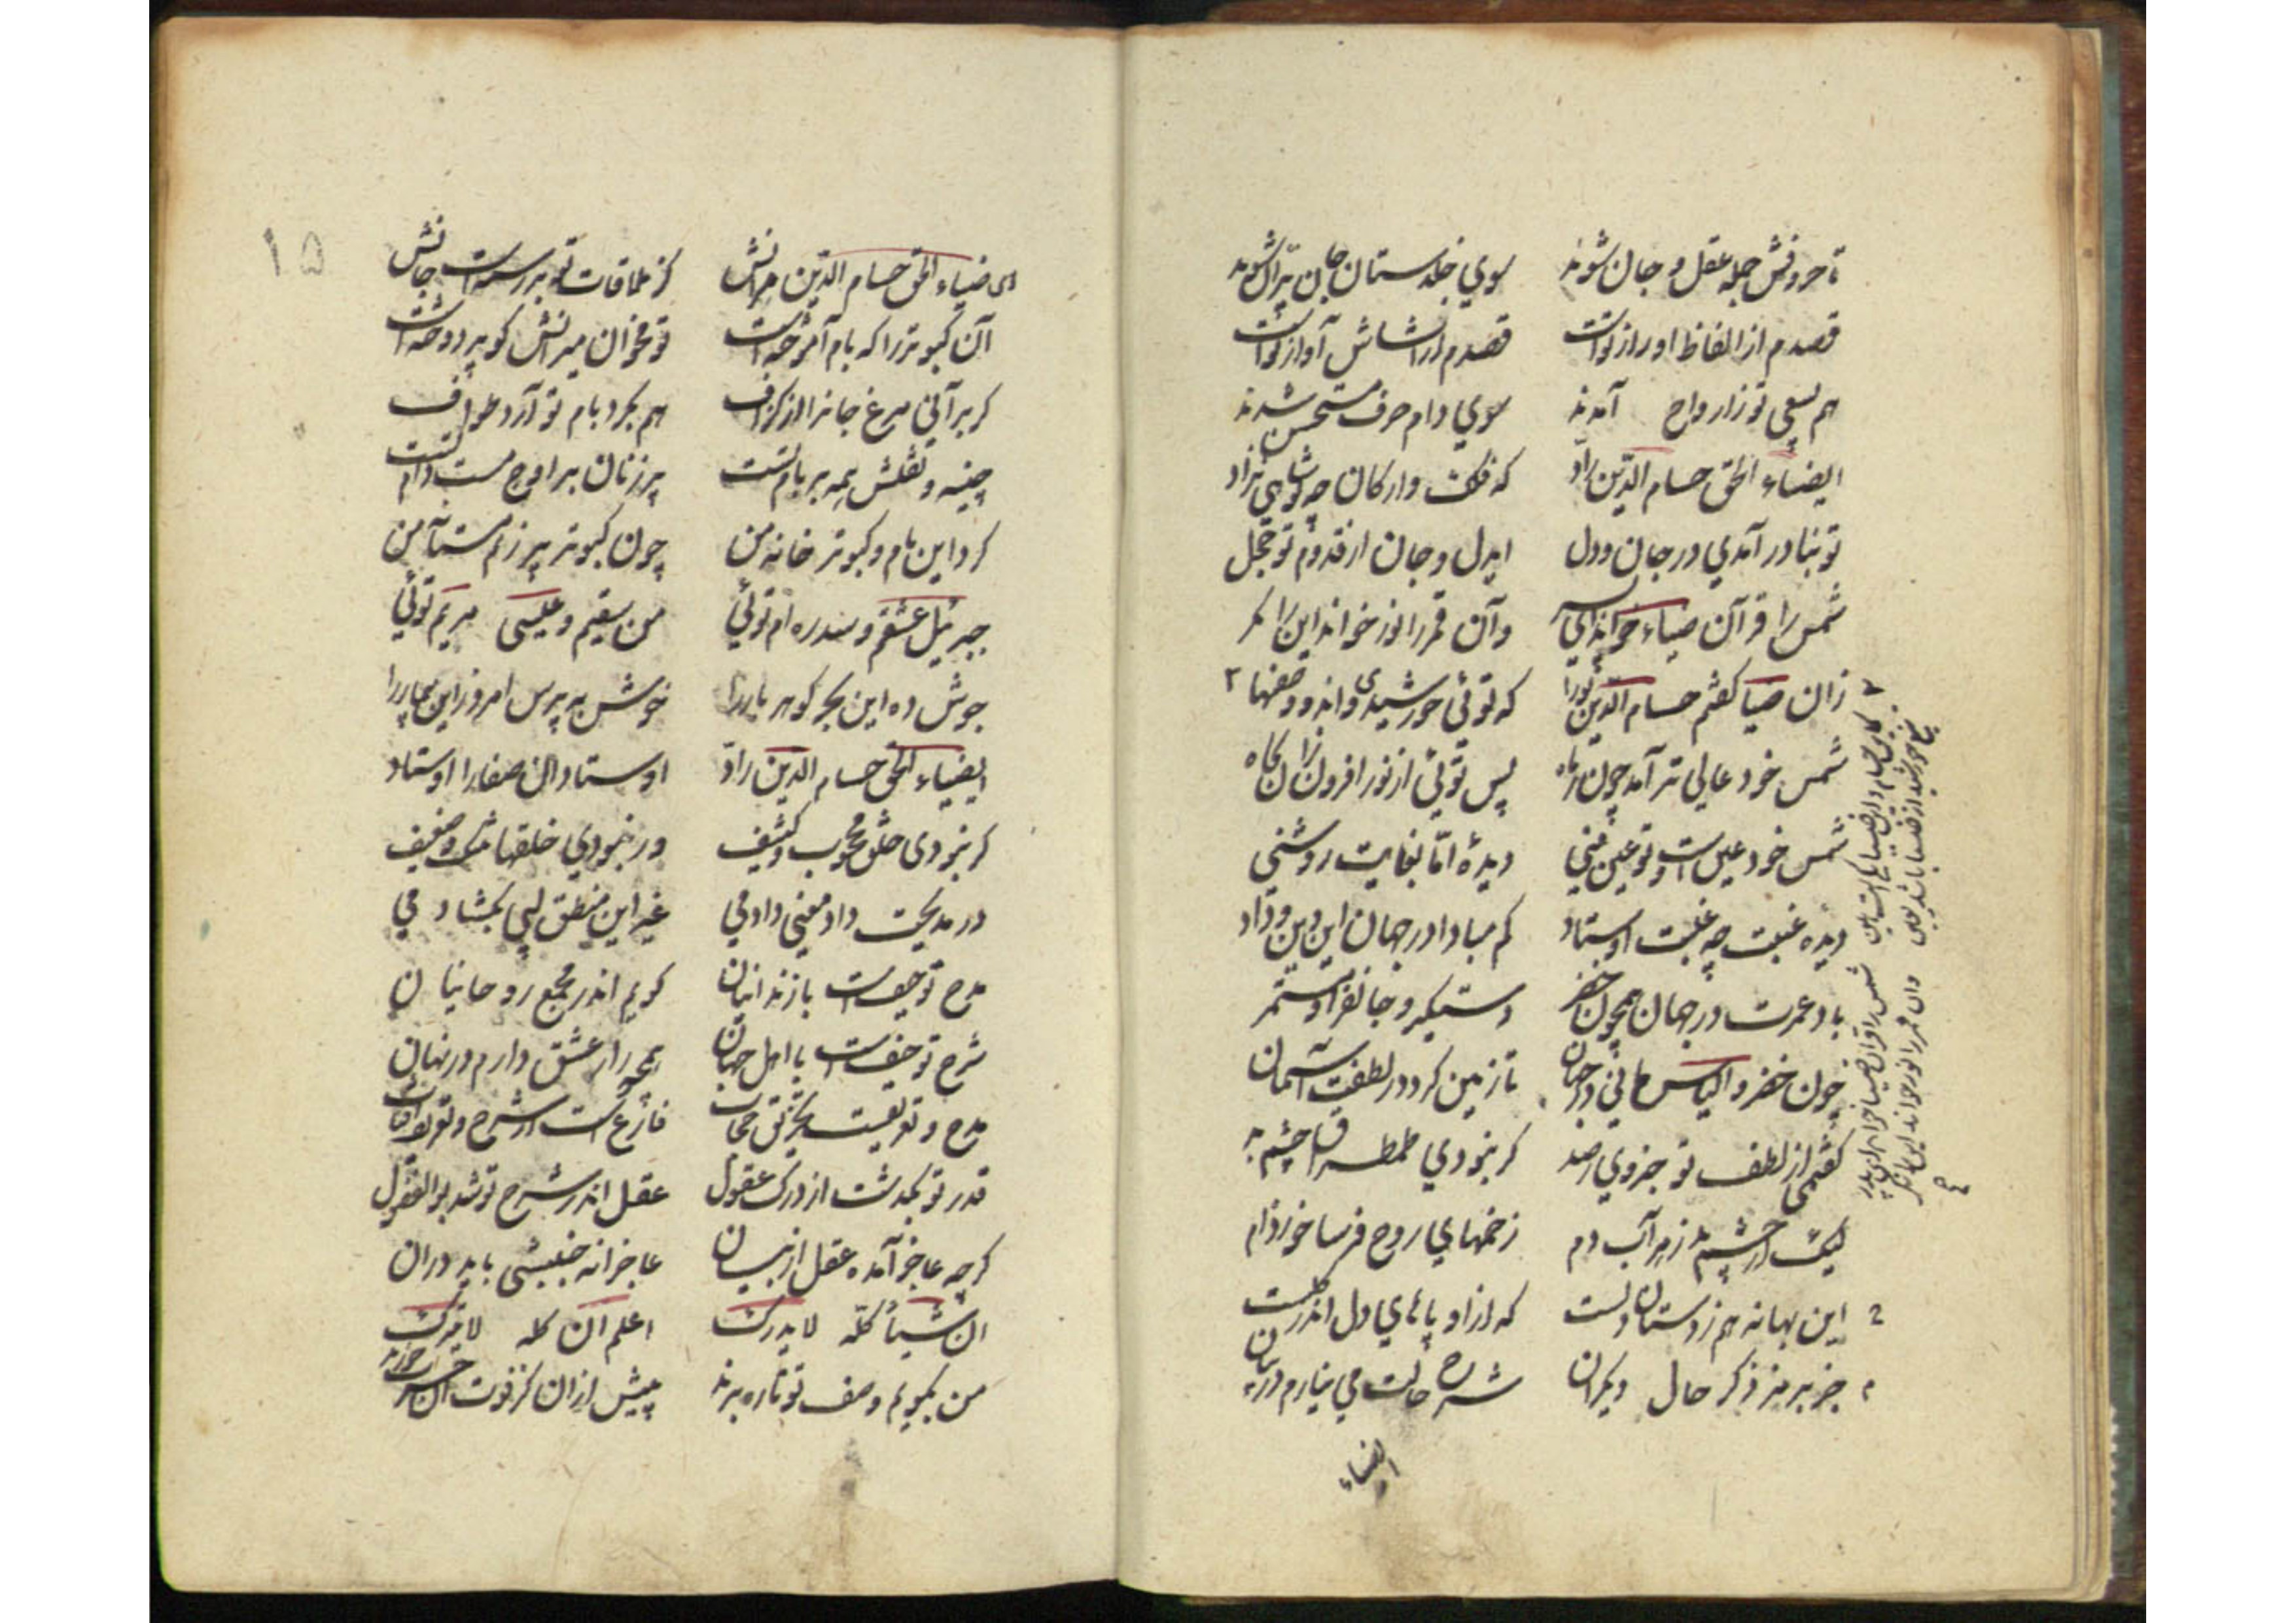 تا حروفش جمله عقل و جان شوند سوي خلدستان جان پران شوند
قصدم از الفاظ او راز توست قصدم از انشاش آواز توست
هم بسعي تو ز ارواح آمدند سوي دام حرف مستحسن شدند
ايضياء الحق حسام الدين راد كه فلك و اركان چو تو شاهي نزاد
تو بنادر آمدي در جان و دل ايدل و جان از قدوم تو خجل
شمس را قرآن ضياء خواند اي پسر و آن قمر را نور خواند اين را نكر
زان ضيا كفتم حسام الدين ترا كه توئي خورشيد و اندو وصفها
شمس خود عالي تر آمد چون ز ماه پس توئي از نور افزون زان بكاه
شمس خود عين است و تو عين مني ديدهٔ اما بغايت روشني
ديده غيبت چو غيبت اوستاد كم مبادا در جهان اين دين و داد
باد عمرت در جهان همچون خضر دستكير و جانفزا و مستمر
چون خضر و الياس ماني در جهان تا زمين كردد ز لطفت آسمان
كفتمي از لطف تو جزوي ز صد كر نبودي طمطراق چشم بد
ليك از چشم بد زهرآب دم زخمهاي روح فرسا خورده ام
اين بهانه هم ز دستان دلست كه از او پاهاي دل اندر كلست
جز برمز ذكر حال ديكران شرح حالت مي نيارم در بيان
ايضياء
شمس را قرآن ضيا خواند اي پدر
وان قمر را نور خواند اين را نكر
۱۵
اي ضياء الحق حسام الدين برانش كز ملاقات تو بر رسته است جانش
آن كبوتر را كه بام آموخته است تو مخوان ميرانش كو پر دوخته است
كر برآني مرغ جانرا از كزاف هم بكرد بام تو آرد طواف
چينه و نقلش همه بر بام تست پر زنان بر اوج مست دام تست
كرد اين بام و كبوتر خانه من چون كبوتر پر زنم مستانه من
جبرئيل عشقم و سدره ام توئي من سقيم و عيسي مريم توئي
جوش ده اين بحر كوهربار را خوش بپرس امروز اين بيمار را
ايضياء الحق حسام الدين راد اوستادان صفا را اوستاد
كر نبودي خلق محجوب و كثيف ور نبودي خلقها تنك و ضعيف
در مديحت داد معني دادمي غير اين منطق لبي بكشادمي
مدح تو حيف است با زندانيان كويم اندر مجمع روحانيان
شرح تو حيف است با اهل جهان همچو راز عشق دارم در نهان
مدح و تعريفست تخريق حجاب فارغ است از شرح و تعريف آفتاب
قدر تو بكذشت از درك عقول عقل اندر شرح تو شد بوالفضول
كرچه عاجز آمد عقل از بيان عاجزانه جنبشي بايد در آن
ان شيئاً كله لا يدرك اعلم ان كله لا يترك
من بكويم وصف تو تا ره برند پيش از ان كز فوت آن حسرت خورند